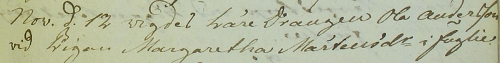 Nov. d. 12 vigdes Kåre Drängen Ola Andersson
vid Pigan Margaretha Mårtensdr i fuglie